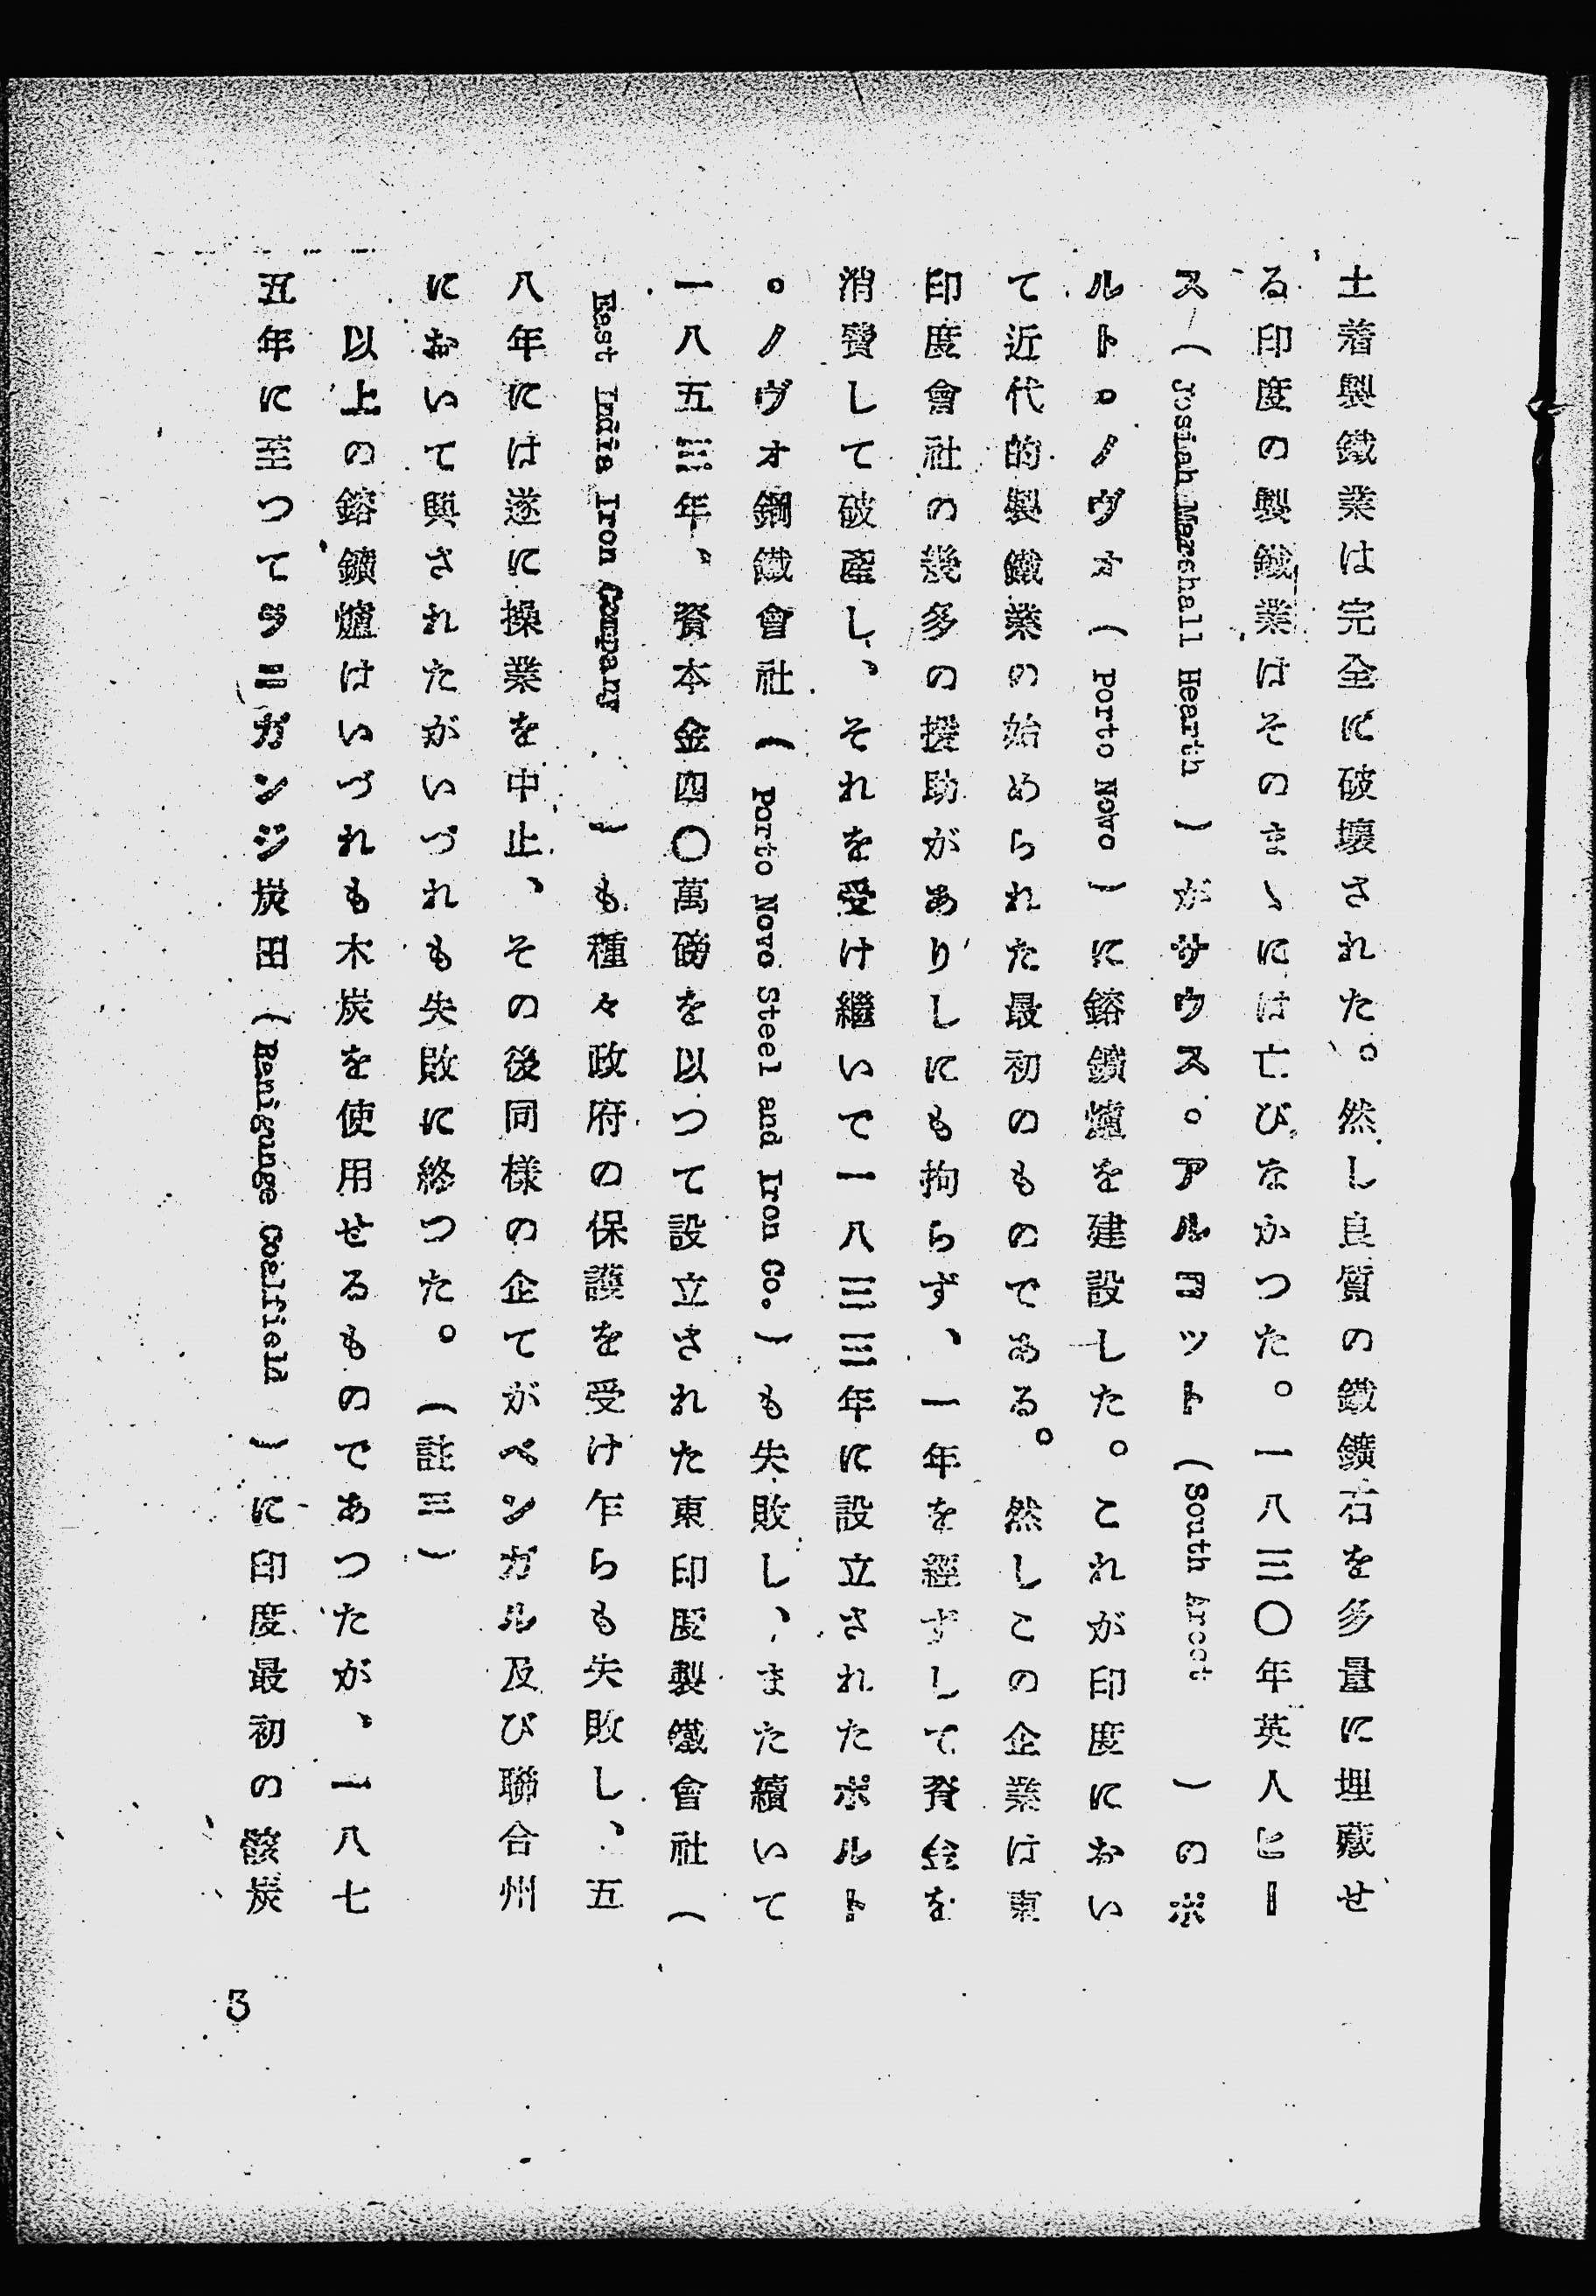 土着製鐵業は完全に破壞された。然し良質の鐵鑛石を多量に埋藏せ
る印度の製鐵業はそのまゝには亡びなかつた。一八三〇年英人ヒー
ス（Josiah Marshall Hearth）がサウス。アルコット（South Arcot）のポ
ルト。ノヴォ（Porto Novo）に鎔鑛爐を建設した。これが印度におい
て近代的製鐵業の始められた最初のものである。然しこの企業は東
印度會社の幾多の援助がありしにも拘らず、一年を經ずして資金を
消費して破產し、それを受け繼いで一八三三年に設立されたポルト
。ノヴォ鋼鐵會社（Porto Novo Steel and Iron Co.）も失敗し、また續いて
一八五三年、資本金四〇萬磅を以つて設立された東印度製鐵會社（
East India Iron Company）も種々政府の保護を受け乍らも失敗し、五
八年には遂に操業を中止、その後同樣の企てがベンガル及び聯合州
において興されたがいづれも失敗に終つた。（註三）
以上の鎔鑛爐はいづれも木炭を使用せるものであつたが、一八七
五年に至つてラニガンジ炭田（Ranigunge Coalfield）に印度最初の骸炭
3